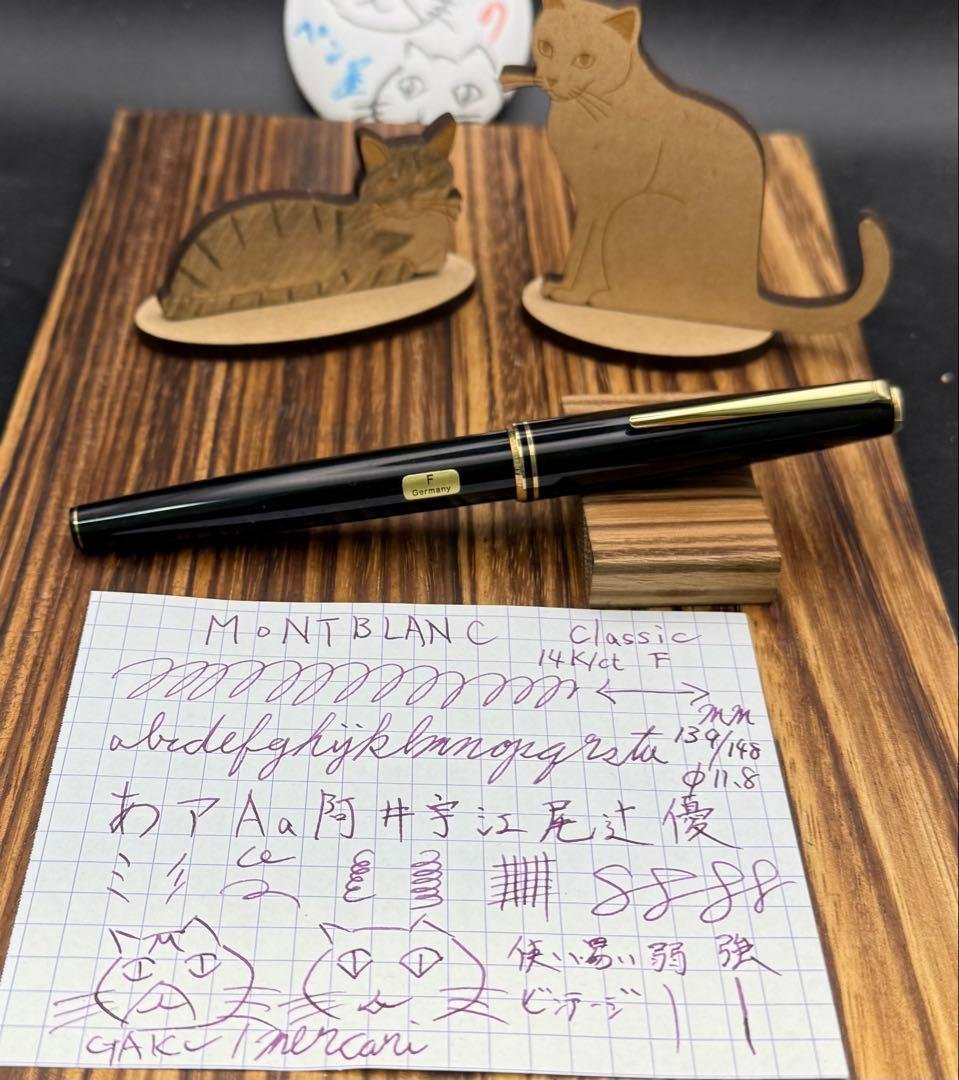 F
Germany
MONTBLANC Classic
14K/ct F
mm
abcdefghijklmnopqrstu 139/148
φ11.8
あ ア Aa 阿 井 宇 江 尾 辻 優
使い易い 弱 強
ビンテージ
GAKU / mercari